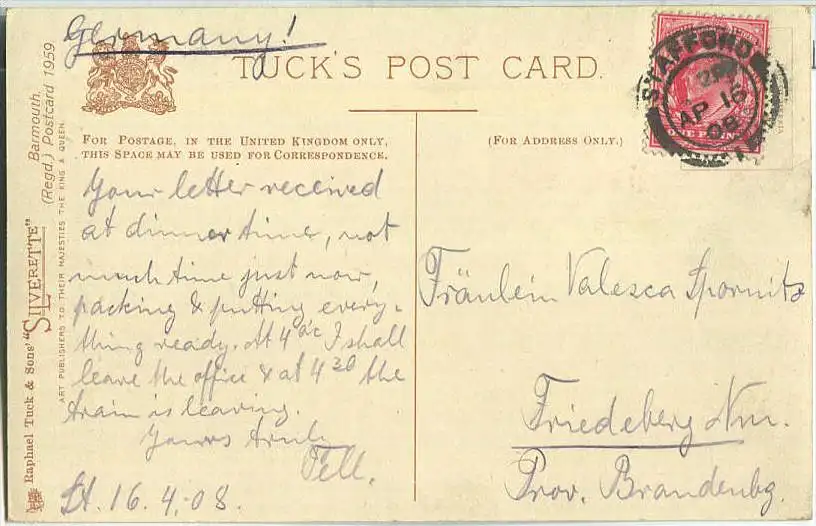 Germany!
TUCK'S POST CARD.
STAFFORD
AP 16
08
ONE PENNY
FOR POSTAGE, IN THE UNITED KINGDOM ONLY,
THIS SPACE MAY BE USED FOR CORRESPONDENCE.
(FOR ADDRESS ONLY.)
Your letter received
at dinner time, not
much time just now,
packing & putting every-
thing ready. At 4 oc I shall
leave the office & at 4 30 the
train is leaving.
Yours truly
Tell.
St. 16.4.08.
Fräulein Valesca Spornitz
Friedeberg Nm.
Prov. Brandenbg.
Raphael Tuck & Sons' "SILVERETTE"
Barmouth.
(Regd.) Postcard 1959
ART PUBLISHERS TO THEIR MAJESTIES THE KING & QUEEN.